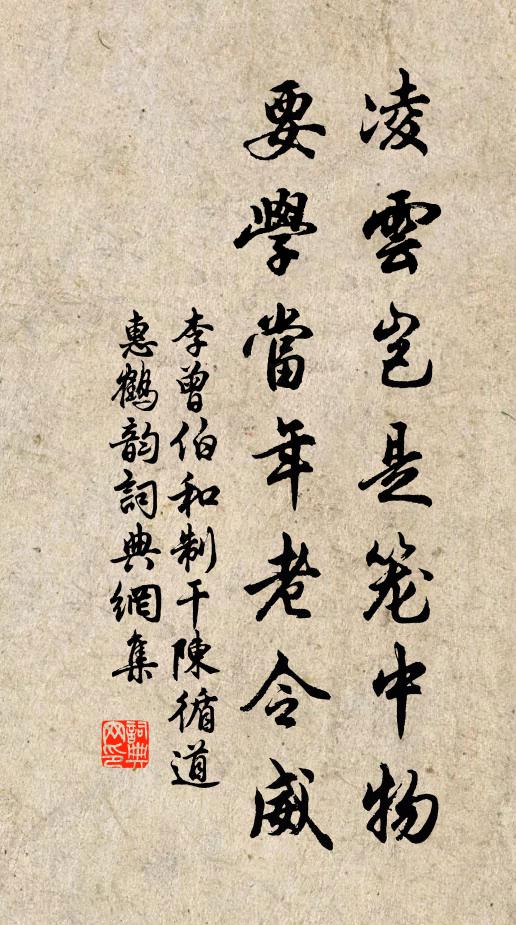 凌雲豈是笼中物
要學當年老令威
李曾伯和制干陳循道
惠鶴韵詞典網集
詞典